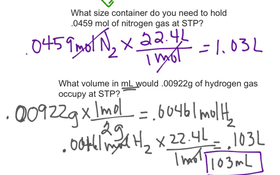 What size container do you need to hold
.0459 mol of nitrogen gas at STP?
.0459 mol N2 × 22.4L / 1 mol = 1.03L
What volume in mL would .00922g of hydrogen gas
occupy at STP?
.00922g × 1mol / 2g = .00461 mol H2
.00461 mol H2 × 22.4L / 1mol = .103L
103mL